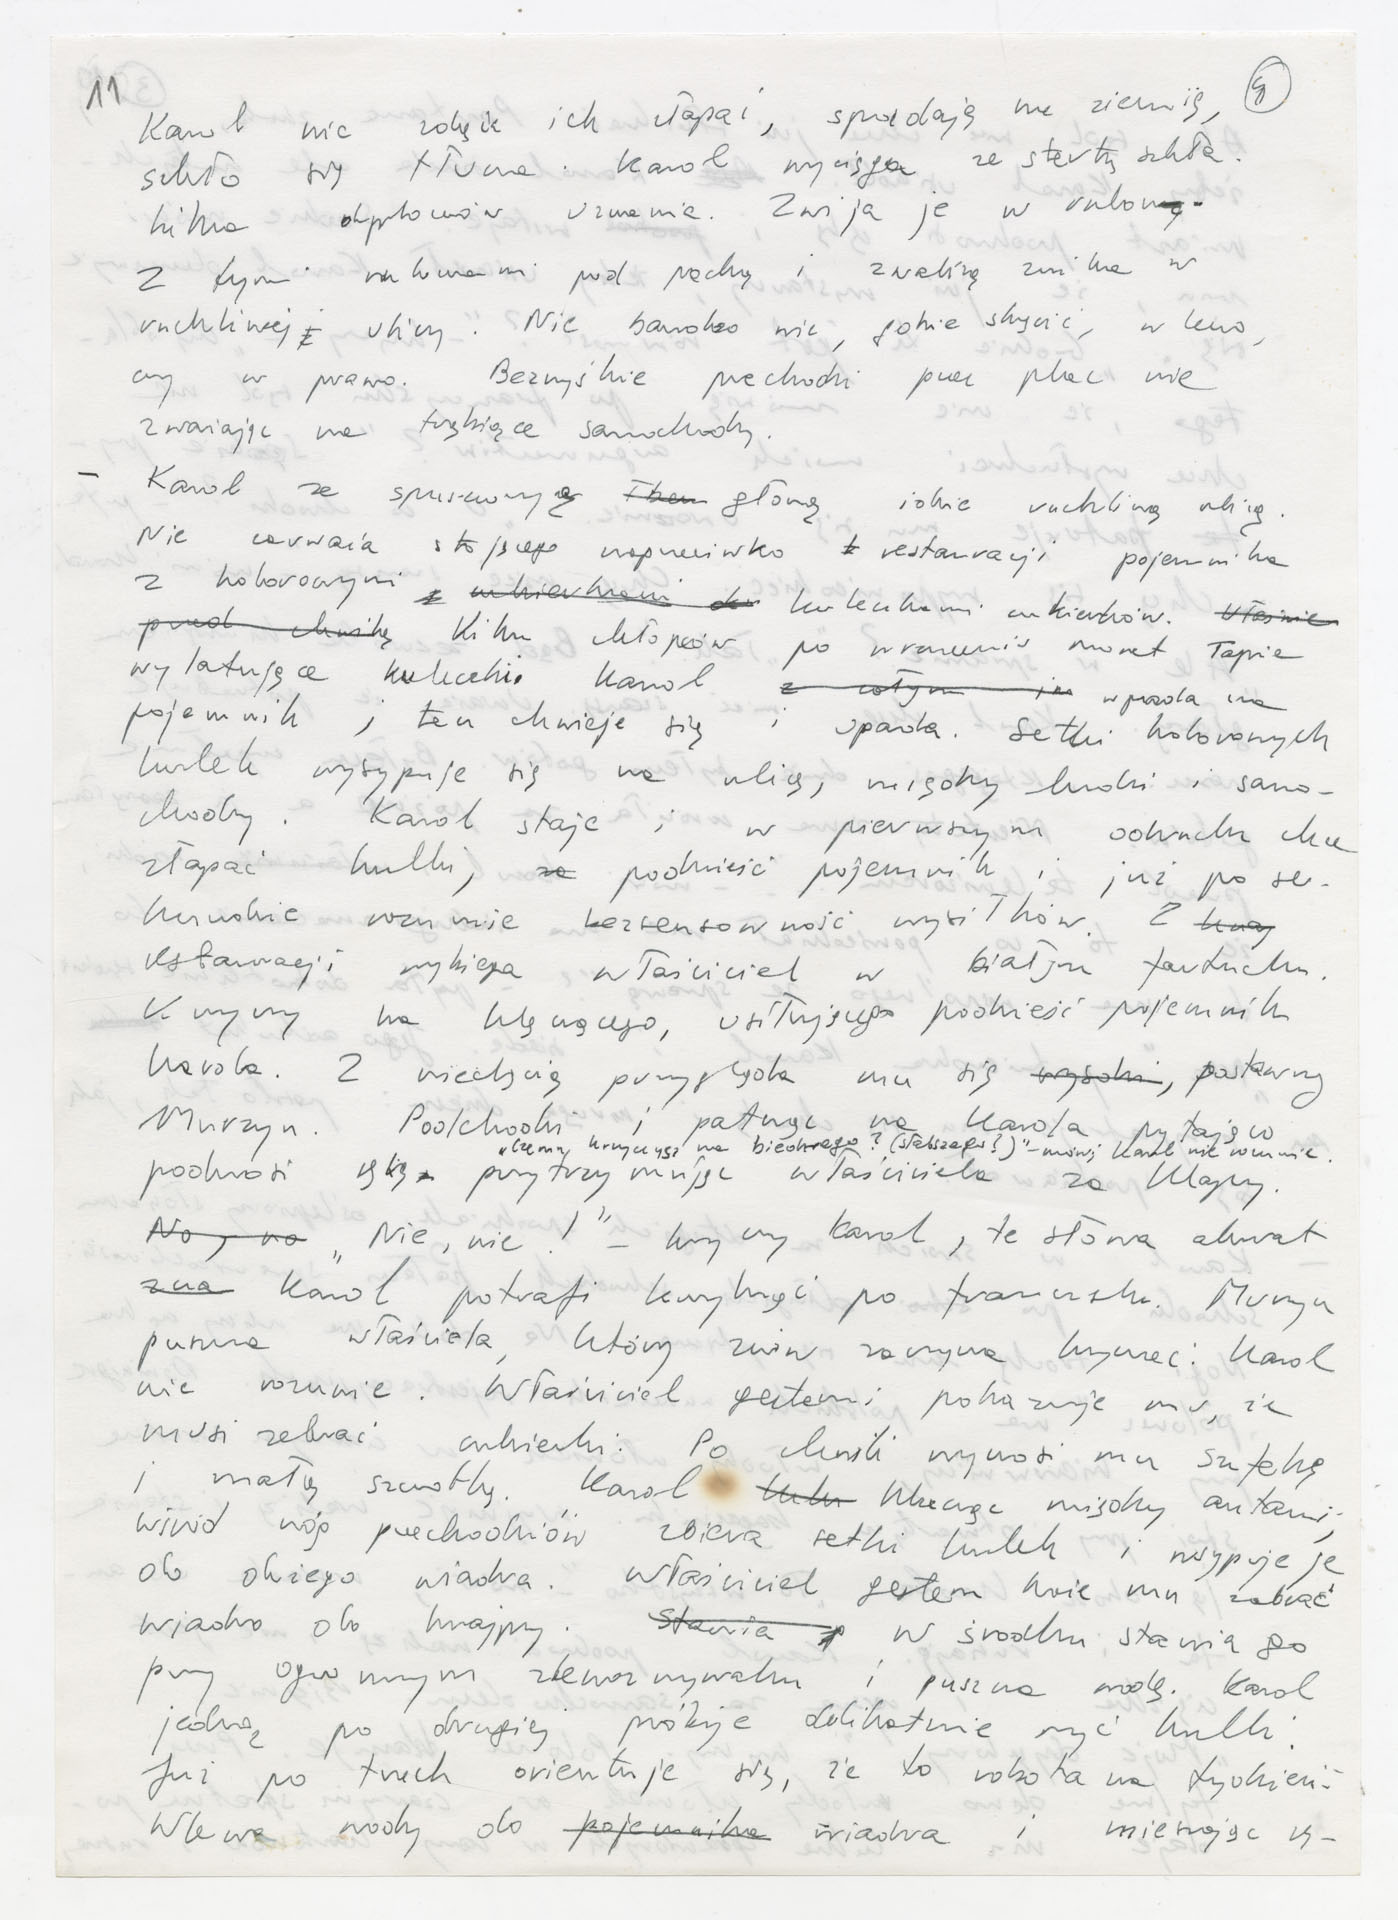 11
9
Karol nie zdąża ich złapać, spadają na ziemię,
szkło się tłucze. Karol wyciąga ze sterty szkła
kilka dyplomów uznania. Zwija je w rulony.
Z tymi rulonami pod pachą i walizką znika w
ruchliwej ulicy. Nie bardzo wie, gdzie skręcić, w lewo,
czy w prawo. Bezmyślnie przechodzi przez plac nie
zważając na trąbiące samochody.
- Karol ze spuszczoną głową idzie ruchliwą ulicą.
Nie zauważa stojącego naprzeciwko restauracji pojemnika
z kolorowymi z cukierkami do kuleczkami cukierków. Właśnie
przed chwilką Kilku chłopców po wrzuceniu monet łapie
wylatujące kuleczki. Karol z całym wpada na
pojemnik i ten chwieje się i upada. Setki kolorowych
kulek wysypuje się na ulicę, między ludzi i samo-
chody. Karol staje i w pierwszym odruchu chce
złapać kulki, podnieść pojemnik i już po se-
kundzie rozumie bezsensowność wysiłków. Z
restauracji wybiega właściciel w białym fartuchu.
Krzyczy na klęczącego, usiłującego podnieść pojemnik
Karola. Z niechęcią przygląda mu się wysoki, postawny
Murzyn. Podchodzi i patrząc na Karola pytająco
"czemu krzyczysz na biednego? (słabszego?)" - mówi Karol nie rozumie.
podnosi rękę przytrzymując właściciela za klapy.
No, no "Nie, nie!" - krzyczy Karol, te słowa akurat
zna Karol potrafi krzyknąć po francusku. Murzyn
puszcza właściciela, który znów zaczyna krzyczeć. Karol
nie rozumie. Właściciel gestami pokazuje mu, że
musi zebrać cukierki. Po chwili wynosi mu szufelkę
i małą szczotkę. Karol klęcząc między autami,
wśród nóg przechodniów zbiera setki kulek i wsypuje je
do dużego wiadra. Właściciel gestem każe mu zabrać
wiadro do knajpy. Stawia W środku stawia go
przy ogromnym zlewozmywaku i puszcza wodę. Karol
jedną po drugiej próbuje delikatnie myć kulki.
Już po trzech orientuje się, że to robota na tydzień.
Wlewa wody do pojemnika wiadra i mieszając rę-